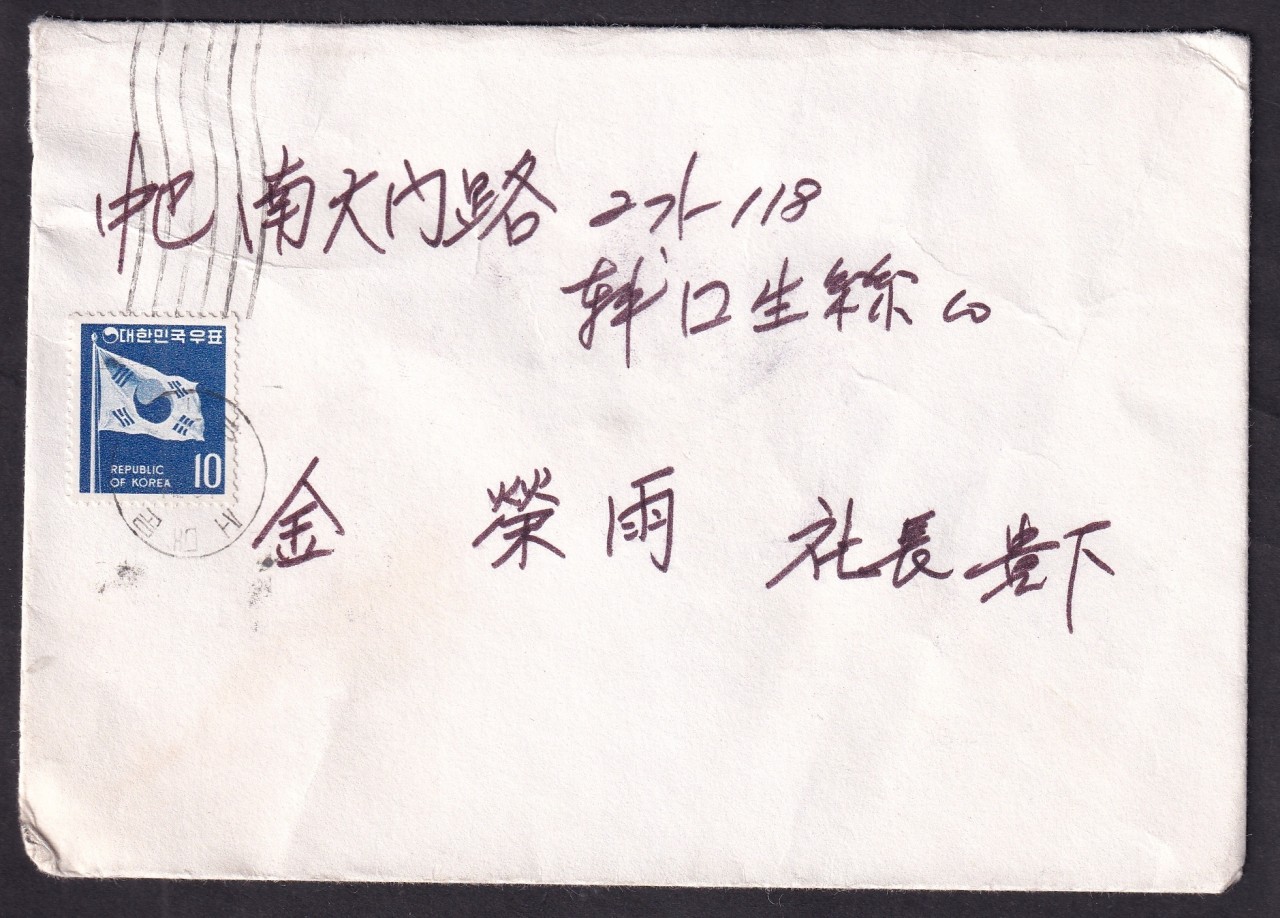 中區 南大門路 2가 118
韓囗生絲 公
대한민국우표
REPUBLIC
OF KOREA 10
金 榮雨 社長 貴下